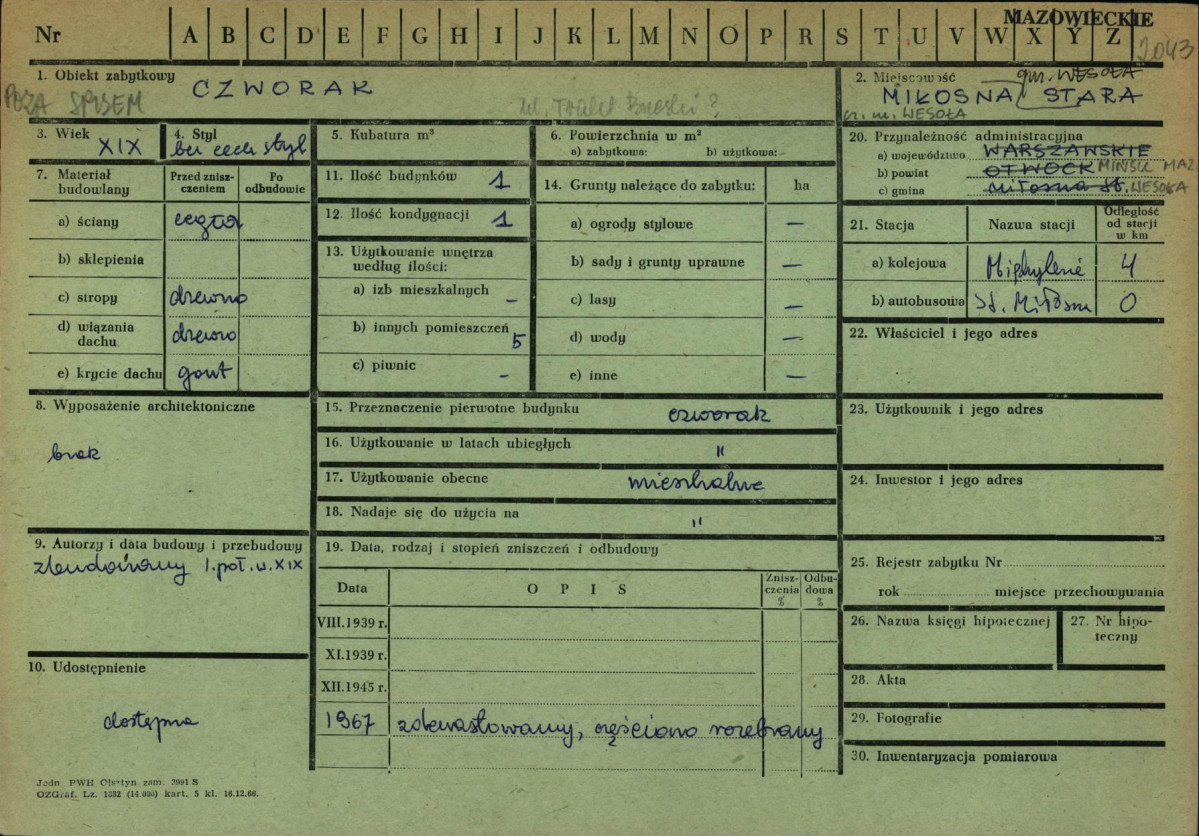 MAZOWIECKIE
Nr A B C D E F G H I J K L M N O P R S T U V W X Y Z 2043
1. Obiekt zabytkowy CZWORAK
POZA SPISEM
ul. Trakt Brzeski?
2. Miejscowość gm. WESOŁA
MIŁOSNA STARA
cz. m. WESOŁA
3. Wiek XIX
4. Styl bez cech styl
5. Kubatura m³
6. Powierzchnia w m²
a) zabytkowa: b) użytkowa:
7. Materiał budowlany
Przed zniszczeniem
Po odbudowie
a) ściany cegła
b) sklepienia
c) stropy drewno
d) wiązania dachu drewno
e) krycie dachu gont
8. Wyposażenie architektoniczne
brak
9. Autorzy i data budowy i przebudowy
zbudowany 1. poł. w. XIX
10. Udostępnienie
dostępna
11. Ilość budynków 1
12. Ilość kondygnacji 1
13. Użytkowanie wnętrza według ilości:
a) izb mieszkalnych –
b) innych pomieszczeń 5
c) piwnic –
14. Grunty należące do zabytku: ha
a) ogrody stylowe –
b) sady i grunty uprawne –
c) lasy –
d) wody –
e) inne –
15. Przeznaczenie pierwotne budynku czworak
16. Użytkowanie w latach ubiegłych "
17. Użytkowanie obecne mieszkalne
18. Nadaje się do użycia na "
19. Data, rodzaj i stopień zniszczeń i odbudowy
Data O P I S Zniszczenia % Odbudowa %
VIII.1939 r.
XI.1939 r.
XII.1945 r.
1967 zdewastowany, częściowo rozebrany
20. Przynależność administracyjna
a) województwo WARSZAWSKIE
b) powiat OTWOCK MIŃSK MAZ
c) gmina Miłosna St. WESOŁA
21. Stacja Nazwa stacji Odległość od stacji w km
a) kolejowa Międzylesie 4
b) autobusowa St. Miłosna 0
22. Właściciel i jego adres
23. Użytkownik i jego adres
24. Inwestor i jego adres
25. Rejestr zabytku Nr
rok miejsce przechowywania
26. Nazwa księgi hipotecznej
27. Nr hipoteczny
28. Akta
29. Fotografie
30. Inwentaryzacja pomiarowa
Jedn PWH Olsztyn zam. 2991 S
OZGraf. Lz. 1882 (14.000) kart. 5 kl. 16.12.66.